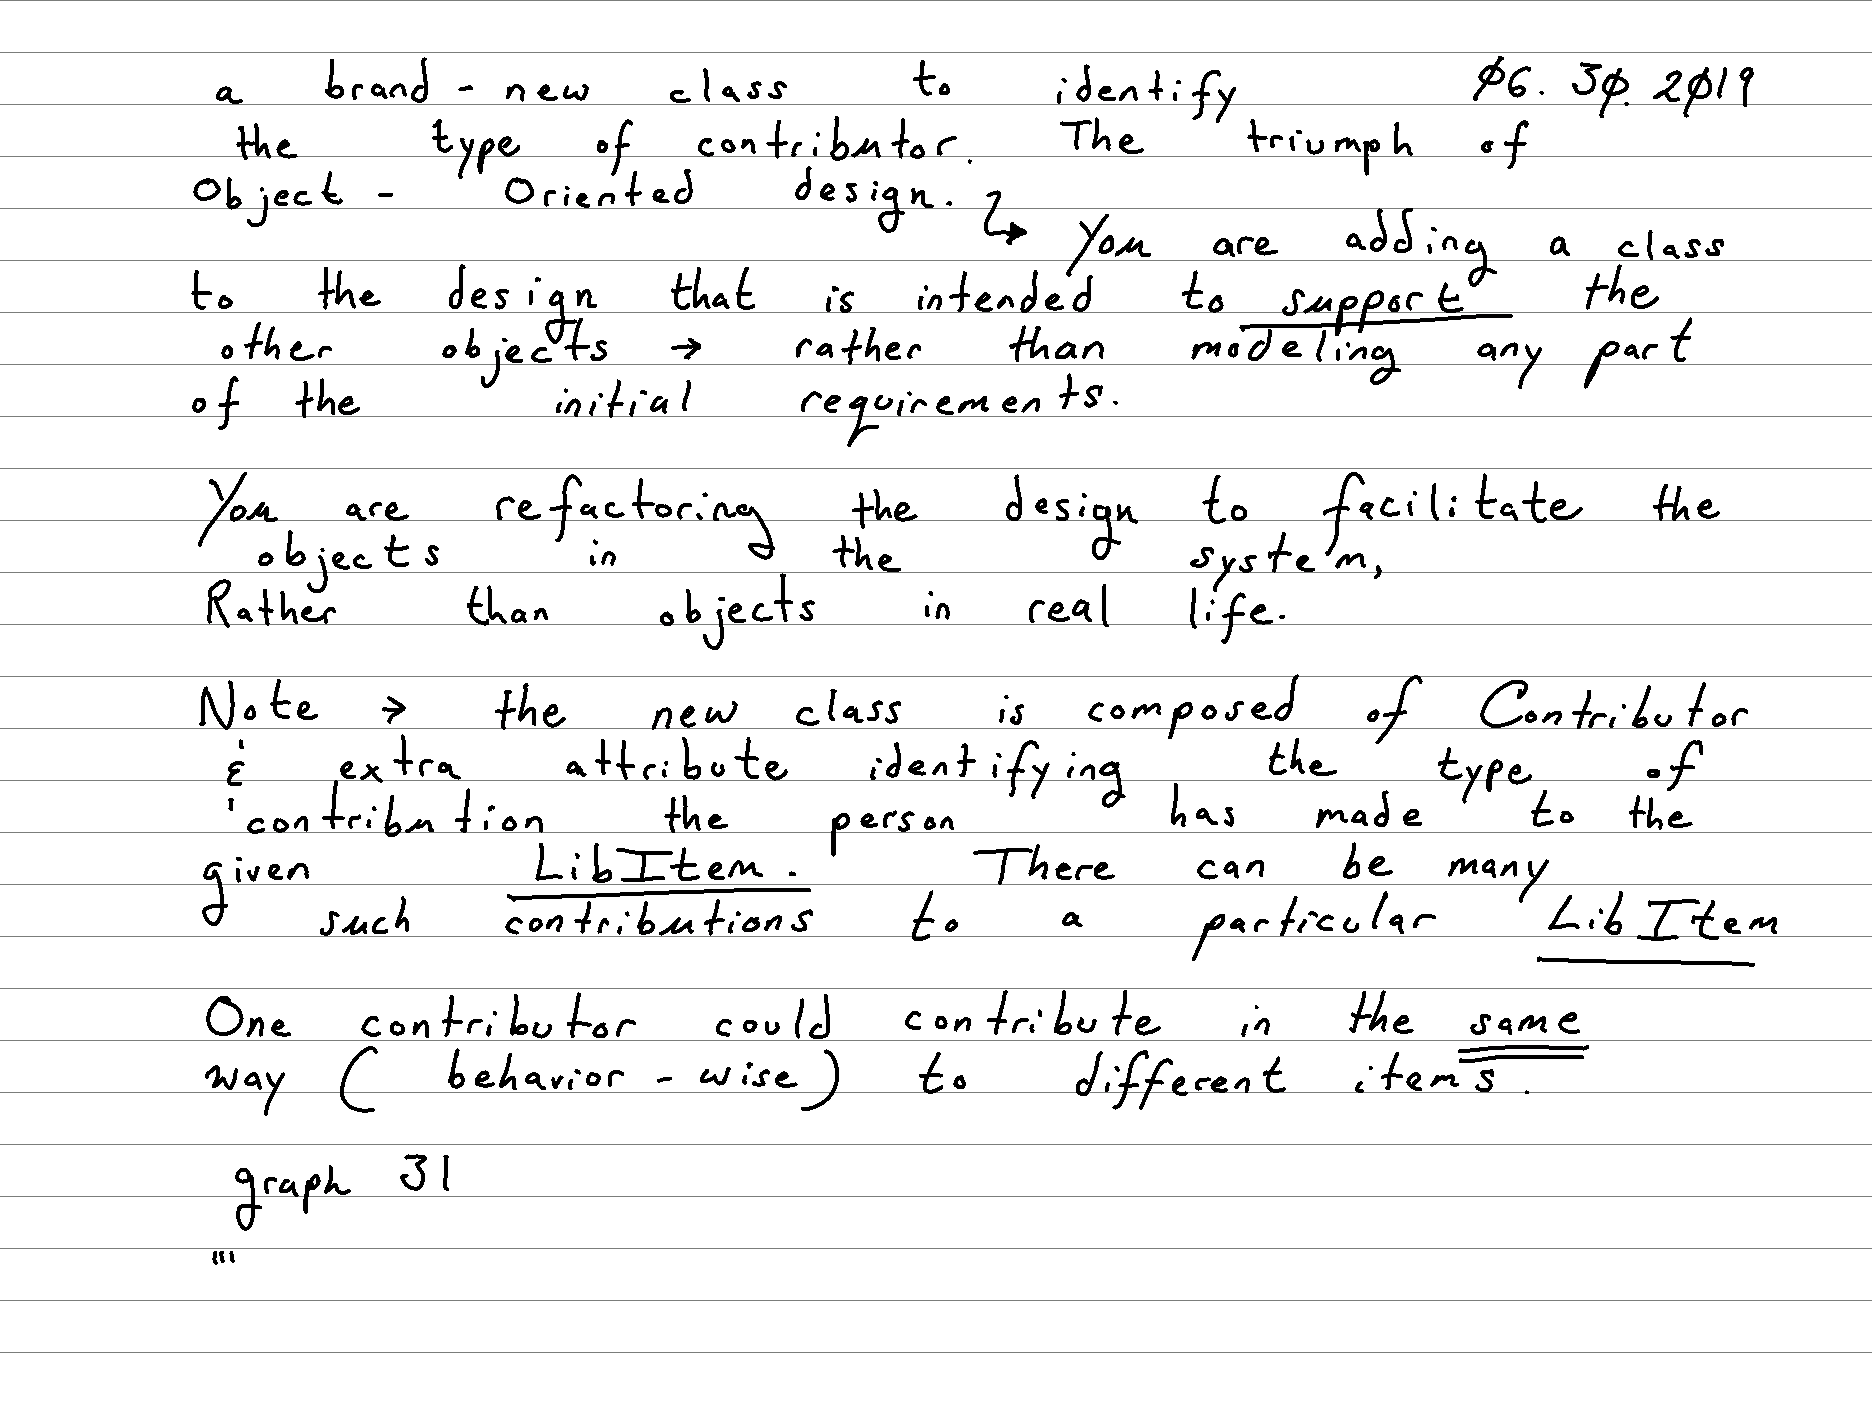 a brand-new class to identify 06.30.2019
the type of contributor. The triumph of
Object - Oriented design.
→ You are adding a class
to the design that is intended to support the
other objects → rather than modeling any part
of the initial requirements.
You are refactoring the design to facilitate the
objects in the system,
Rather than objects in real life.
Note → the new class is composed of Contributor
& extra attribute identifying the type of
contribution the person has made to the
given LibItem. There can be many
such contributions to a particular LibItem
One contributor could contribute in the same
way (behavior-wise) to different items.
graph 31
"'